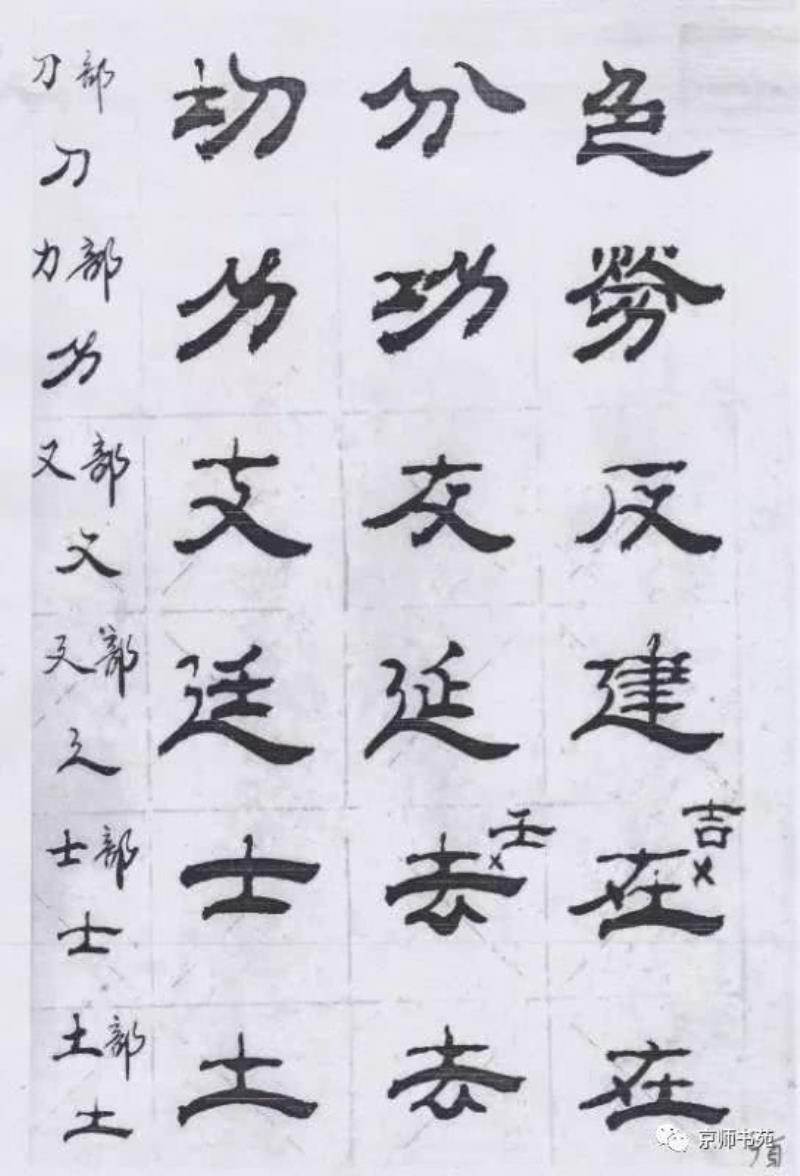 刀部 切 分 色
刀
力部 力 功 勞
力
又部 支 友 反
又
廴部 廷 延 建
廴
壬 吉
士部 士 去 x 在 x
士
土部 土 去 在
土
京师书苑